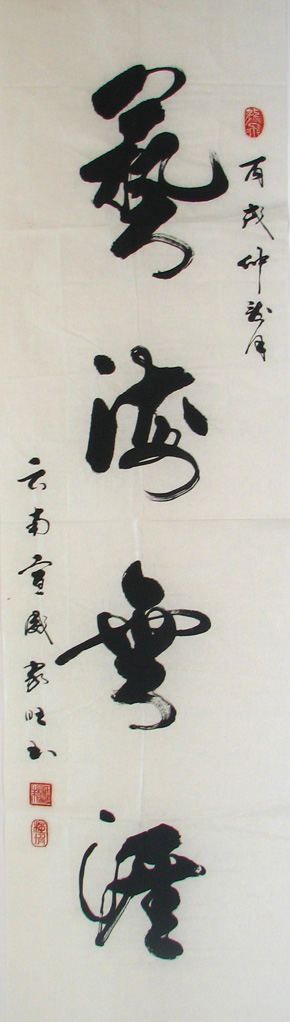 丙戌仲秋月
藝海雲涯
云南宣威家旺书